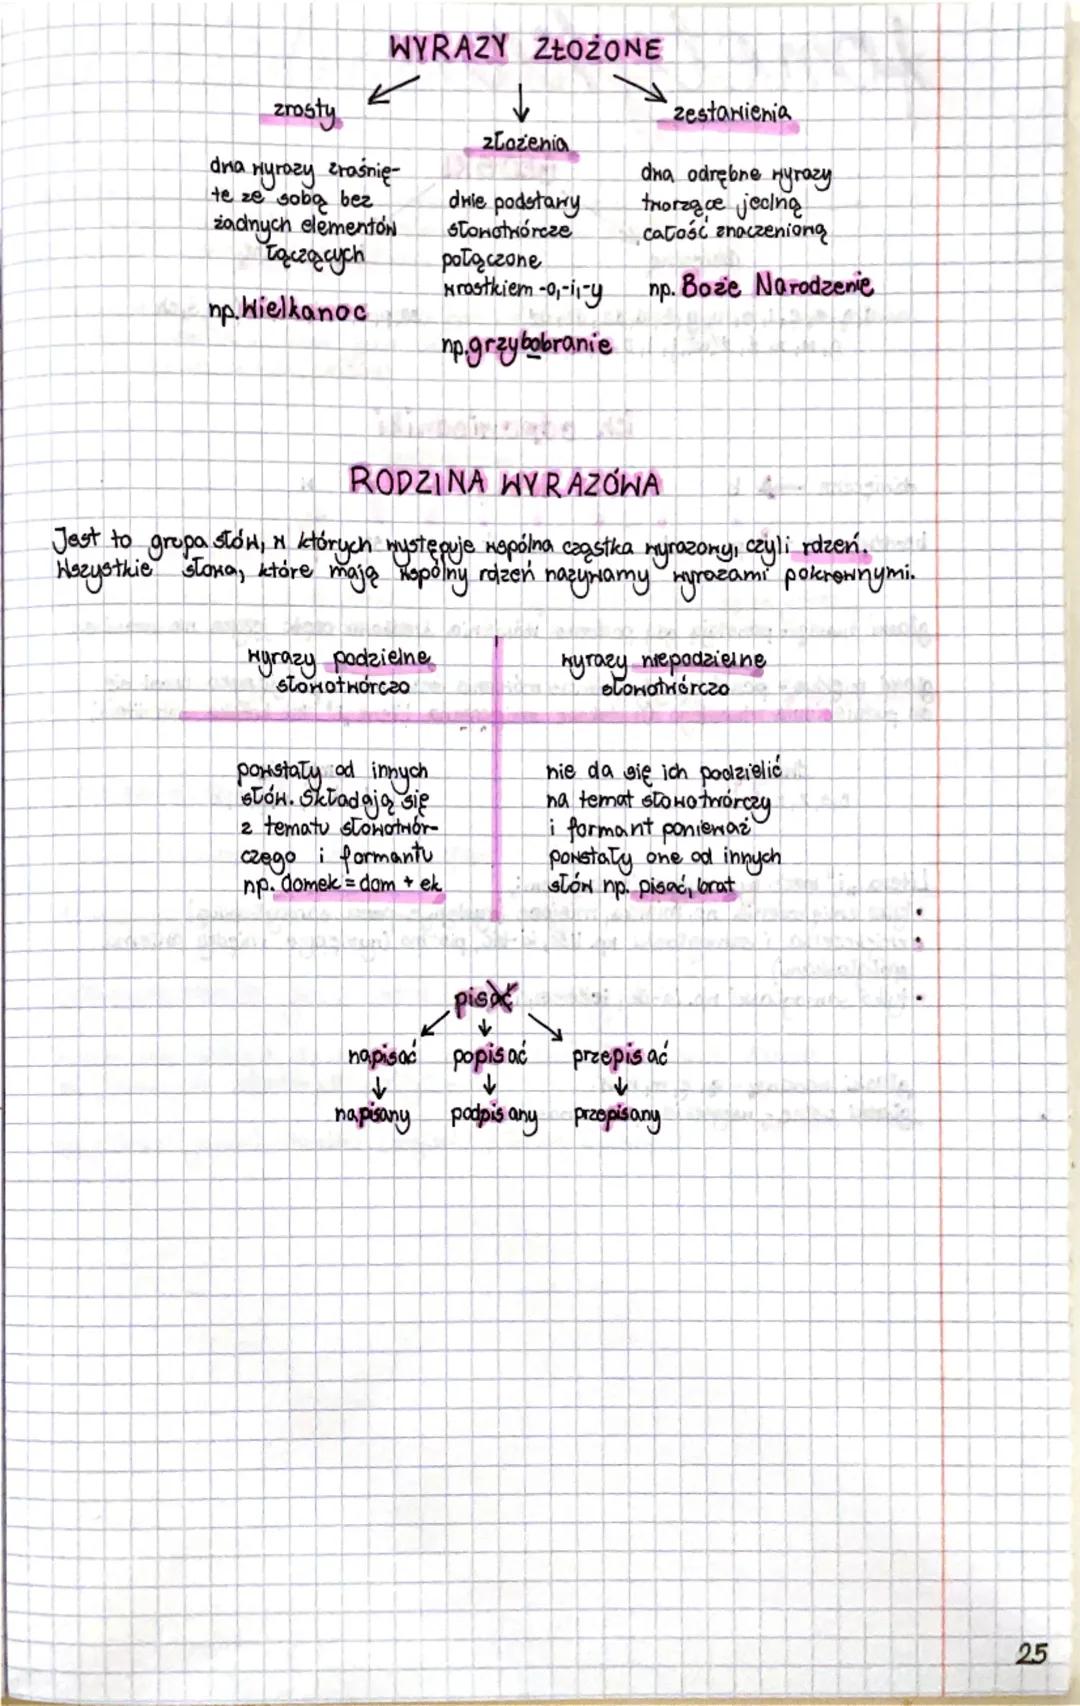 WYRAZY ZŁOŻONE
zrosty
dwa wyrazy zrośnię-
te ze sobą bez
żadnych elementów
łączących
np. Wielkanoc
złożenia
dwie podstawy
słowotwórcze
połączone
wrostkiem -o,-i,-y
np. grzybobranie
zestawienia
dwa odrębne wyrazy
tworzące jedną
całość znaczenioną
np. Boże Narodzenie
RODZINA WYRAZÓWA
Jest to grupa słów, w których występuje wspólna cząstka wyrazowy, czyli rdzeń.
Wszystkie słowa, które mają wspólny rdzeń nazywamy wyrazami pokrewnymi.
wyrazy podzielne
słowotwórczo
powstały od innych
słów. Składają się
z tematu słowotwór-
czego i formantu
np. domek = dom + ek
wyrazy niepodzielne
słowotwórczo
nie da się ich podzielić
na temat słowotwórczy
i formant ponieważ
powstały one od innych
słów np. pisać, brat
pisać
napisać popisać przepisać
napisany podpisany przepisany
25